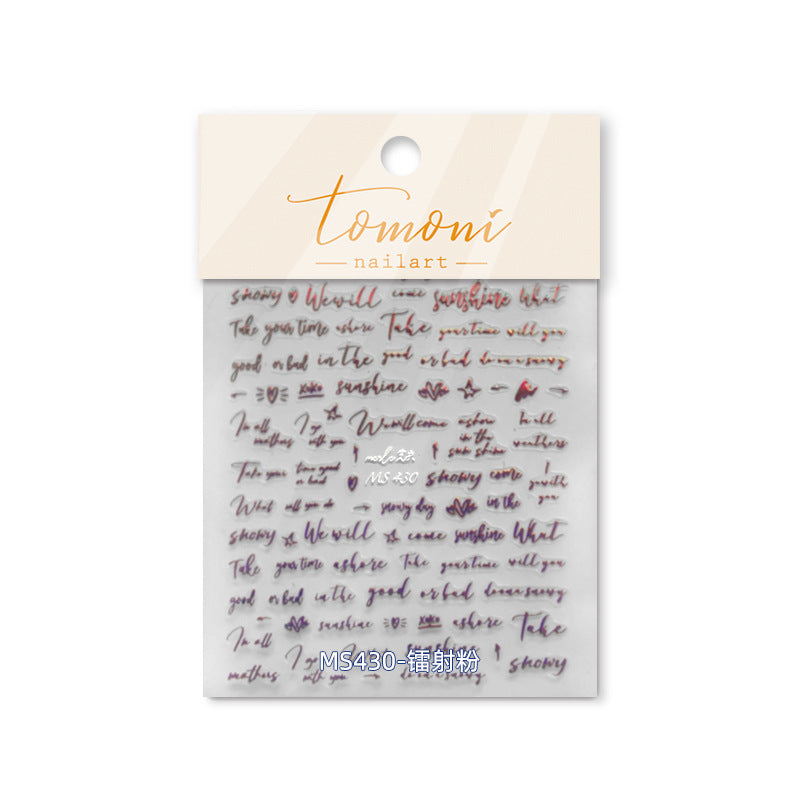 tomoni
nailart
snowy We will come sunshine What
Take your time ashore Take your time will you
good or bad in the good or bad
XoXo sunshine
In all I go We will come ashow be all
with you in the weathers
sun shine
Take your time good snowy come I
or bad MS 430 go with
you
What will you do snowy day in the
snowy We will come sunshine What
Take your time ashore Take your time will you
good or bad in the good or bad
sunshine XoXo ashore Take
In all I go sunshine
MS430-镭射粉
with you snowy